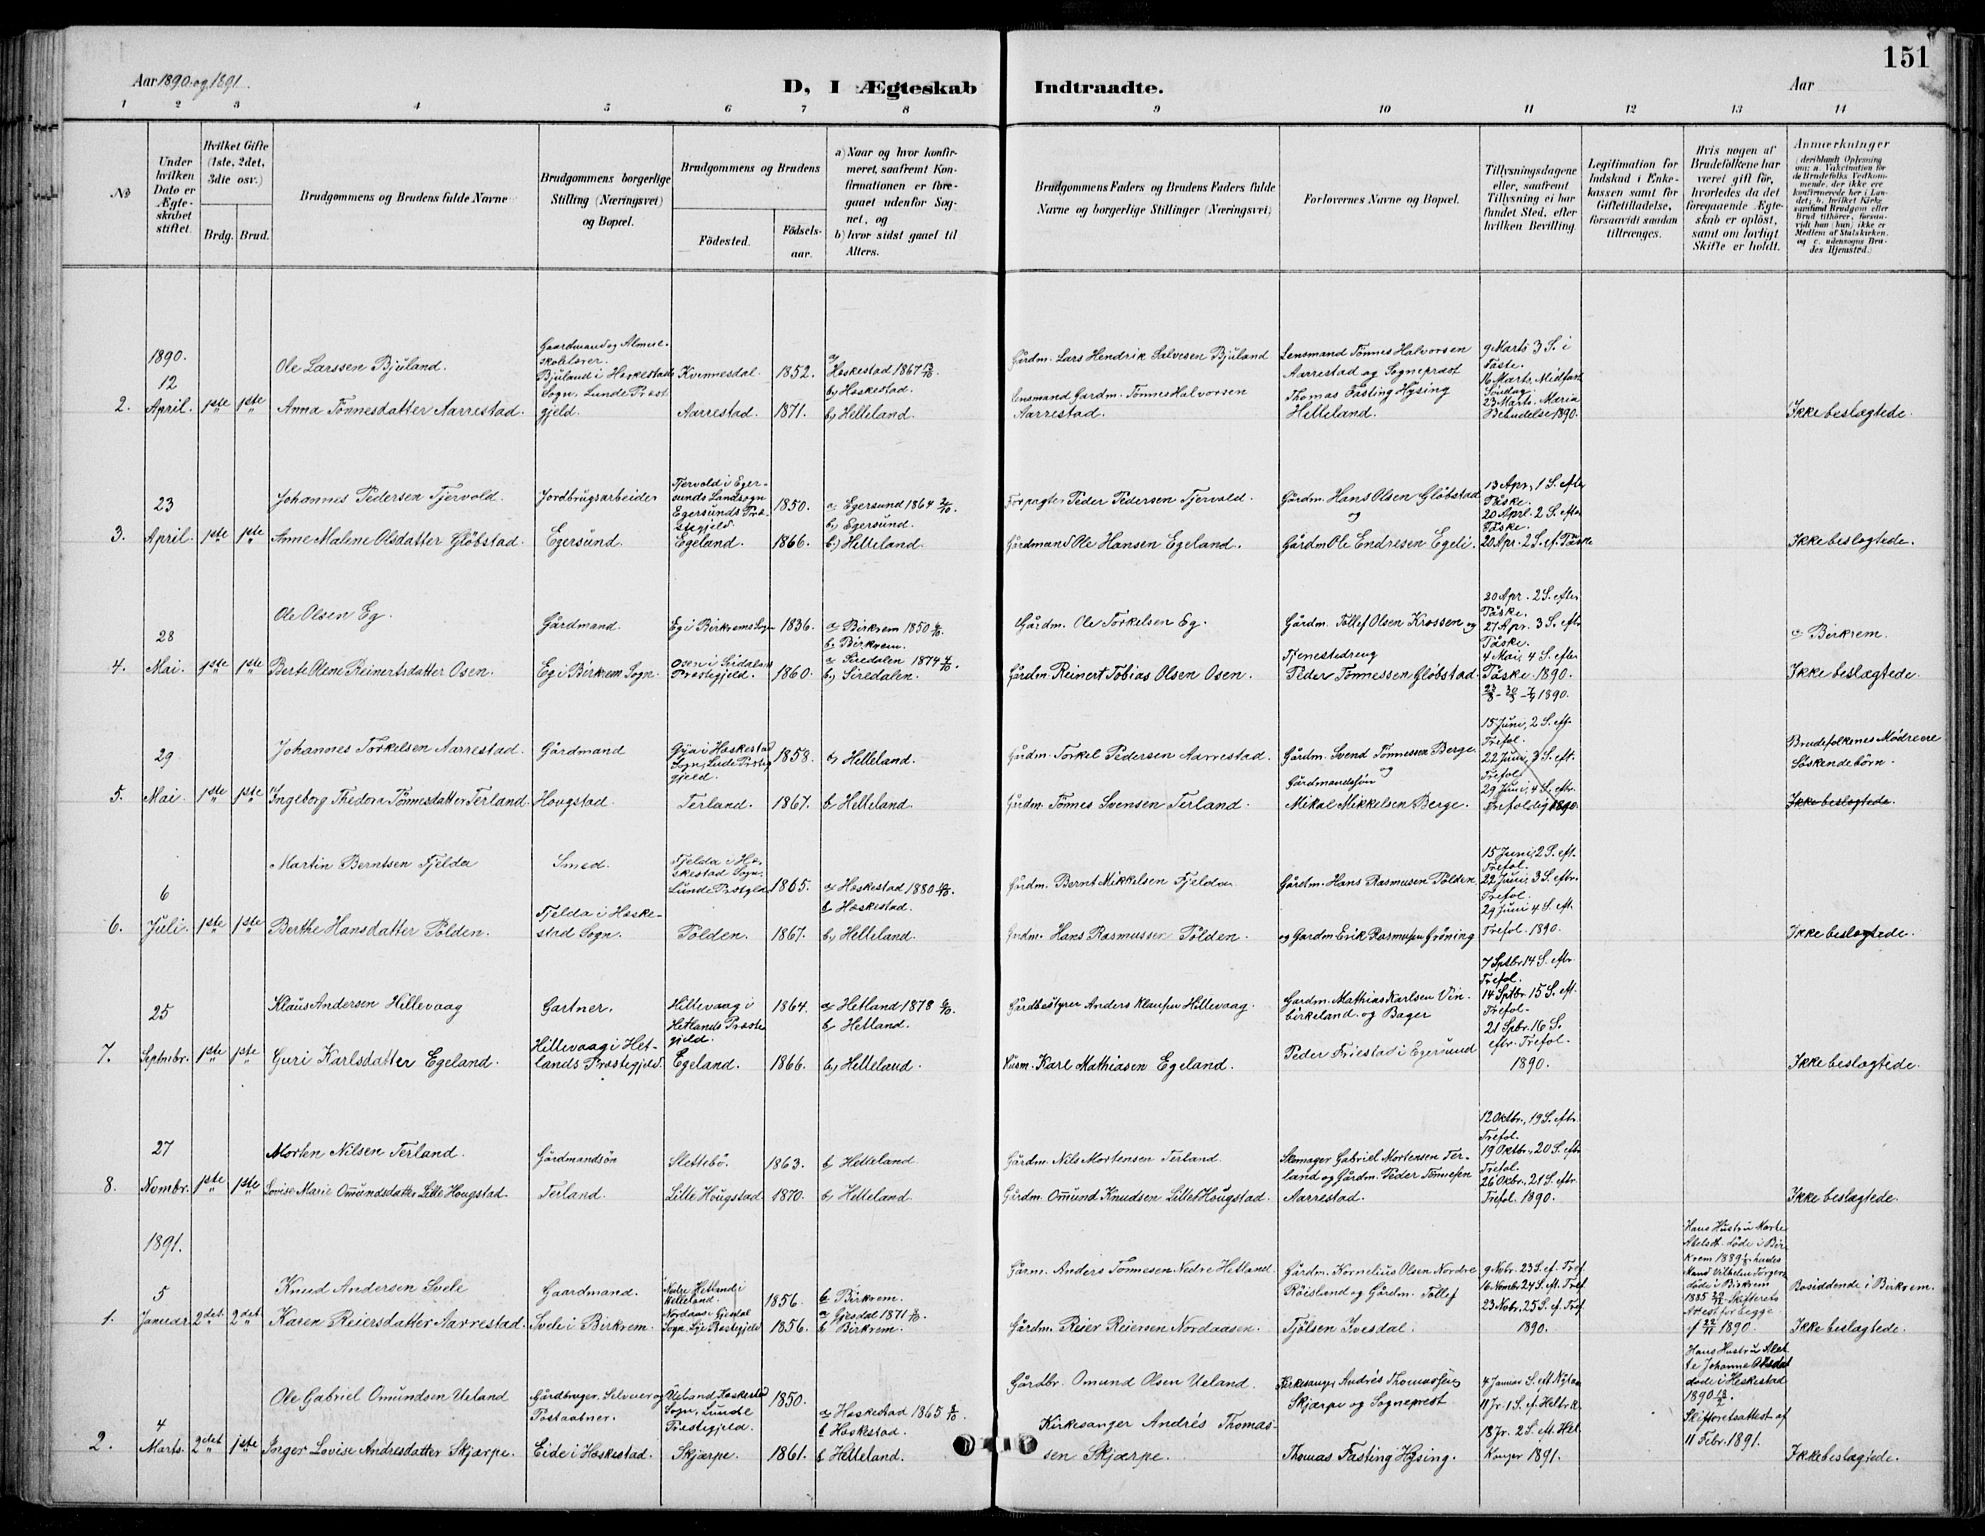 151
Aar 1890 og 1891.
D, I Ægteskab Indtraadte.
Aar
1 2 3 4 5 6 7 8 9 10 11 12 13 14
No
Under hvilken Dato er Ægteskabet stiftet.
Hvilket Gifte (1ste, 2det, 3die osv.)
Brdg. Brud.
Brudgommens og Brudens fulde Navne
Brudgommens borgerlige Stilling (Næringsvei) og Bopæl.
Brudgommens og Brudens
Födested.
Födselsaar.
a) Naar og hvor konfirmeret, saafremt Konfirmationen er foregaaet udenfor Sognet, og
b) hvor sidst gaaet til Alters.
Brudgommens Faders og Brudens Faders fulde Navne og borgerlige Stillinger (Næringsvei)
Forlovernes Navne og Bopæl.
Tillysningsdagene eller, saafremt Tillysning ei har fundet Sted, efter hvilken Bevilling.
Legitimation for Indskud i Enkekassen samt for Giftetilladelse, forsaavidt saadan tiltrænges.
Hvis nogen af Brudefolkene har været gift för, hvorledes da det foregaaende Ægteskab er oplöst, samt om lovligt Skifte er holdt.
Anmærkninger
1890.
12
2. April. 1ste 1ste
Ole Larssen Bjuland.
Anna Tönnesdatter Aarrestad.
Gaardmand og Almueskolelærer.
Bjuland i Heskestads Sogn, Lunde Præstgjeld
Kvinnesdal 1852.
Aarrestad. 1871.
Heskestad 1867
b) Heskestad.
b) Helleland.
Gårdm. Lars Hendrik Salvesen Bjuland
Lensmand Gardm. Tönnes Halvorsen
Aarrestad.
Lensmand Tönnes Halvorsen
Aarrestad og Sognepræst
Thomas Fasting Hysing
Helleland.
9 Marts 3 S. i
Faste.
16 Marts, Midfast
Söndag
23 Marts. Maria
Bebudelse 1890.
Ikke beslægtede.
23
3. April. 1ste 1ste
Johannes Pedersen Tjervold.
Anne Malene Olsdatter Glöbstad.
Jordbrugsarbeider
Egersund.
Tjervold i Egersunds Landsogn
Egersunds Præstegjeld. 1850.
Egeland. 1866.
a) Egersund 1864
b) Egersund.
b) Helleland.
Forpagter Peder Pedersen Tjervold.
Gårdmand Ole Hansen Egeland.
Gårdm. Hans Olsen Glöbstad
og
Gårdm Ole Endresen Egeli.
13 Apr, 1 S. efter
Påske.
20 Apl. 2 S. efter
Påske.
20 Apr. 2 S. ef. Påske
Ikke beslægtede.
28
4. Mai. 1ste 1ste
Ole Olsen Eg.
Berte Oline Reinertsdatter Osen.
Gårdmand.
Eg i Birkrem Sogn.
Eg i Birkrems Sogn 1836.
Osen i Siredalens Præstegjeld. 1860.
a) Birkrem 1850
b Birkrem.
a Siredalen 1874
b) Siredalen.
Gårdm. Ole Torkelsen Eg.
Gårdm. Reinert Tobias Olsen Osen.
Gårdm. Tollef Olsen Krossen og
Tjenestedreng
Peder Tönnessen Glöbstad.
20 Apr. 2 S. efter
Påske.
27 Apr. 3 S. eft.
Påske.
4 Mai, 4 S. efter
Påske. 1890.
c) Birkrem.
Ikke beslægtede.
29
5. Mai 1ste 1ste
Johannes Torkelsen Aarrestad.
Ingeborg Thedora Tönnesdatter Terland.
Gårdmand
Hougstad.
Gya i Heskestad
Sogn, Lunde Præstegjeld. 1858.
Terland. 1867.
b) Helleland.
b Helleland.
Gårdm. Torkel Pedersen Aarrestad.
Gårdm. Tönnes Svensen Terland.
Gårdm. Svend Tönnessen Berge
og
Gårdmandssön
Mikal Mikkelsen Berge.
15 Juni, 2 S. eft.
Trefol.
22 Juni, 3 S. eft.
Trefol.
29 Juni, 4 S. eft.
Trefoldig. 1890.
Brudefolkenes Mödre ere
Söskendebörn.
Ikke beslægtede.
6
6. Juli. 1ste 1ste
Martin Berntsen Fjelda
Berthe Hansdatter Pölden.
Smed.
Fjelda i Heskestad Sogn.
Fjelda i Heskestad Sogn.
Lunde Præstgjeld 1865.
Pölden. 1867.
a Heskestad 1880
b Heskestad.
b) Helleland.
Gårdm. Bernt Mikkelsen Fjelda
Grdm. Hans Rasmussen Pölden.
Gårdm. Hans Rasmusen Pölden
og Gardm Erik Rasmusen Gröning
15 Juni, 2 S. eft.
Trefol.
22 Juni, 3 S. eftr.
Trefol.
29 Juni 4 S. eft.
Trefol. 1890.
Ikke beslægtede.
25
7. Septmbr. 1ste 1ste
Klaus Andersen Hillevaag
Guri Karlsdatter Egeland.
Gartner.
Hillevaag i Hetlands Præstegjeld.
Hillevaag i
Hetlands Præstegjeld. 1864.
Egeland. 1866.
a Hetland 1878
b) Hetland.
b) Helleland.
Gårdbestyrer Anders Klausen Hillevaag.
Husm. Karl Mathiasen Egeland.
Gardm. Mathias Karlsen Vinbirkeland og Bager
Peder Friestad i Egersund
7 Sptbr. 14 S. eftr
Trefol.
14 Sptbr. 15 S. eft.
Trefol.
21 Spbr. 16 S.
eftr. Trefol.
1890.
Ikke beslægtede.
27
8. Novmbr. 1ste 1ste
Morten Nilsen Terland.
Lovise Marie Omundsdatter Lille Hougstad
Gårdmandsön
Terland.
Slettebö. 1863.
Lille Hougstad 1870.
b Helleland
b) Helleland.
Gårdm. Nils Mortensen Terland.
Gårdm. Omund Knudsen Lille Hougstad.
Skomager Gabriel Mortensen Terland og Gårdm. Peder Tönnesen
Aarrestad.
12 Oktbr., 19 S. eftr.
Trefol.
19 Oktbr., 20 S. eft.
Trefol.
26 Okbr. 21 S. eftr.
Trefol. 1890.
Ikke beslægtede.
1891.
5
1. Januar 2det 2det
Knud Andersen Svele
Karen Reiersdatter Aarrestad.
Gaardmand.
Svele i Birkrem.
Nedre Hetland i
Helleland. 1856.
Nordaas i Gjesdal
Sogn, Lye Præstegjeld 1856.
b Birkrem.
a Gjesdal 1871
b Birkrem.
Gårm. Anders Tönnesen Nedre Hetland
Gårdm. Reier Reiersen Nordaasen.
Gårdm. Kornelius Olsen Nordre
Röisland og Gårdm. Tollef
Tjölsen Ivesdal.
9 Nvbr. 23 S. ef. Tref.
16 Novmbr 24 S. ef. Tref
23 Nvbr, 25 S. ef. Tref
1890.
Hans Hustru Marte
Abelsdt. döde i Birkrem 1889, hendes
Mand Vilhelm Torgers.
döde i Birkrem
1885 Skifterets
Attest for begge
1890.
Bosiddende i Birkrem.
Ikke beslægtede.
4
2. Marts. 2det 1ste
Ole Gabriel Omundsen Ueland
Inger Lovise Andresdatter Skjærpe.
Gårdbruger, Selveier og
Postaabner.
Eide i Heskestad.
Ueland Heskestad
Sogn, Lunde
Præstegjeld. 1850.
Skjærpe. 1861.
a) Heskestad 1865
b Heskestad.
b Helleland.
Gårdbr. Omund Olsen Ueland.
Kirkesanger Andrés Thomassen Skjærpe.
Kirkesanger Andrés Thomassen
Skjærpe og Sogneprest
Thomas Fasting Hysing.
4 Januar S. eft Nytaar
11 Jr. 1 S. ef. Heltr. K.
18 Jr. 2 S. eft. Hel.
Konger 1891.
Hans Hustru Alette Johanne Olsdat
döde i Heskestad
1890
Skifteretsattest af
11 Febr. 1891.
Ikke beslægtede.